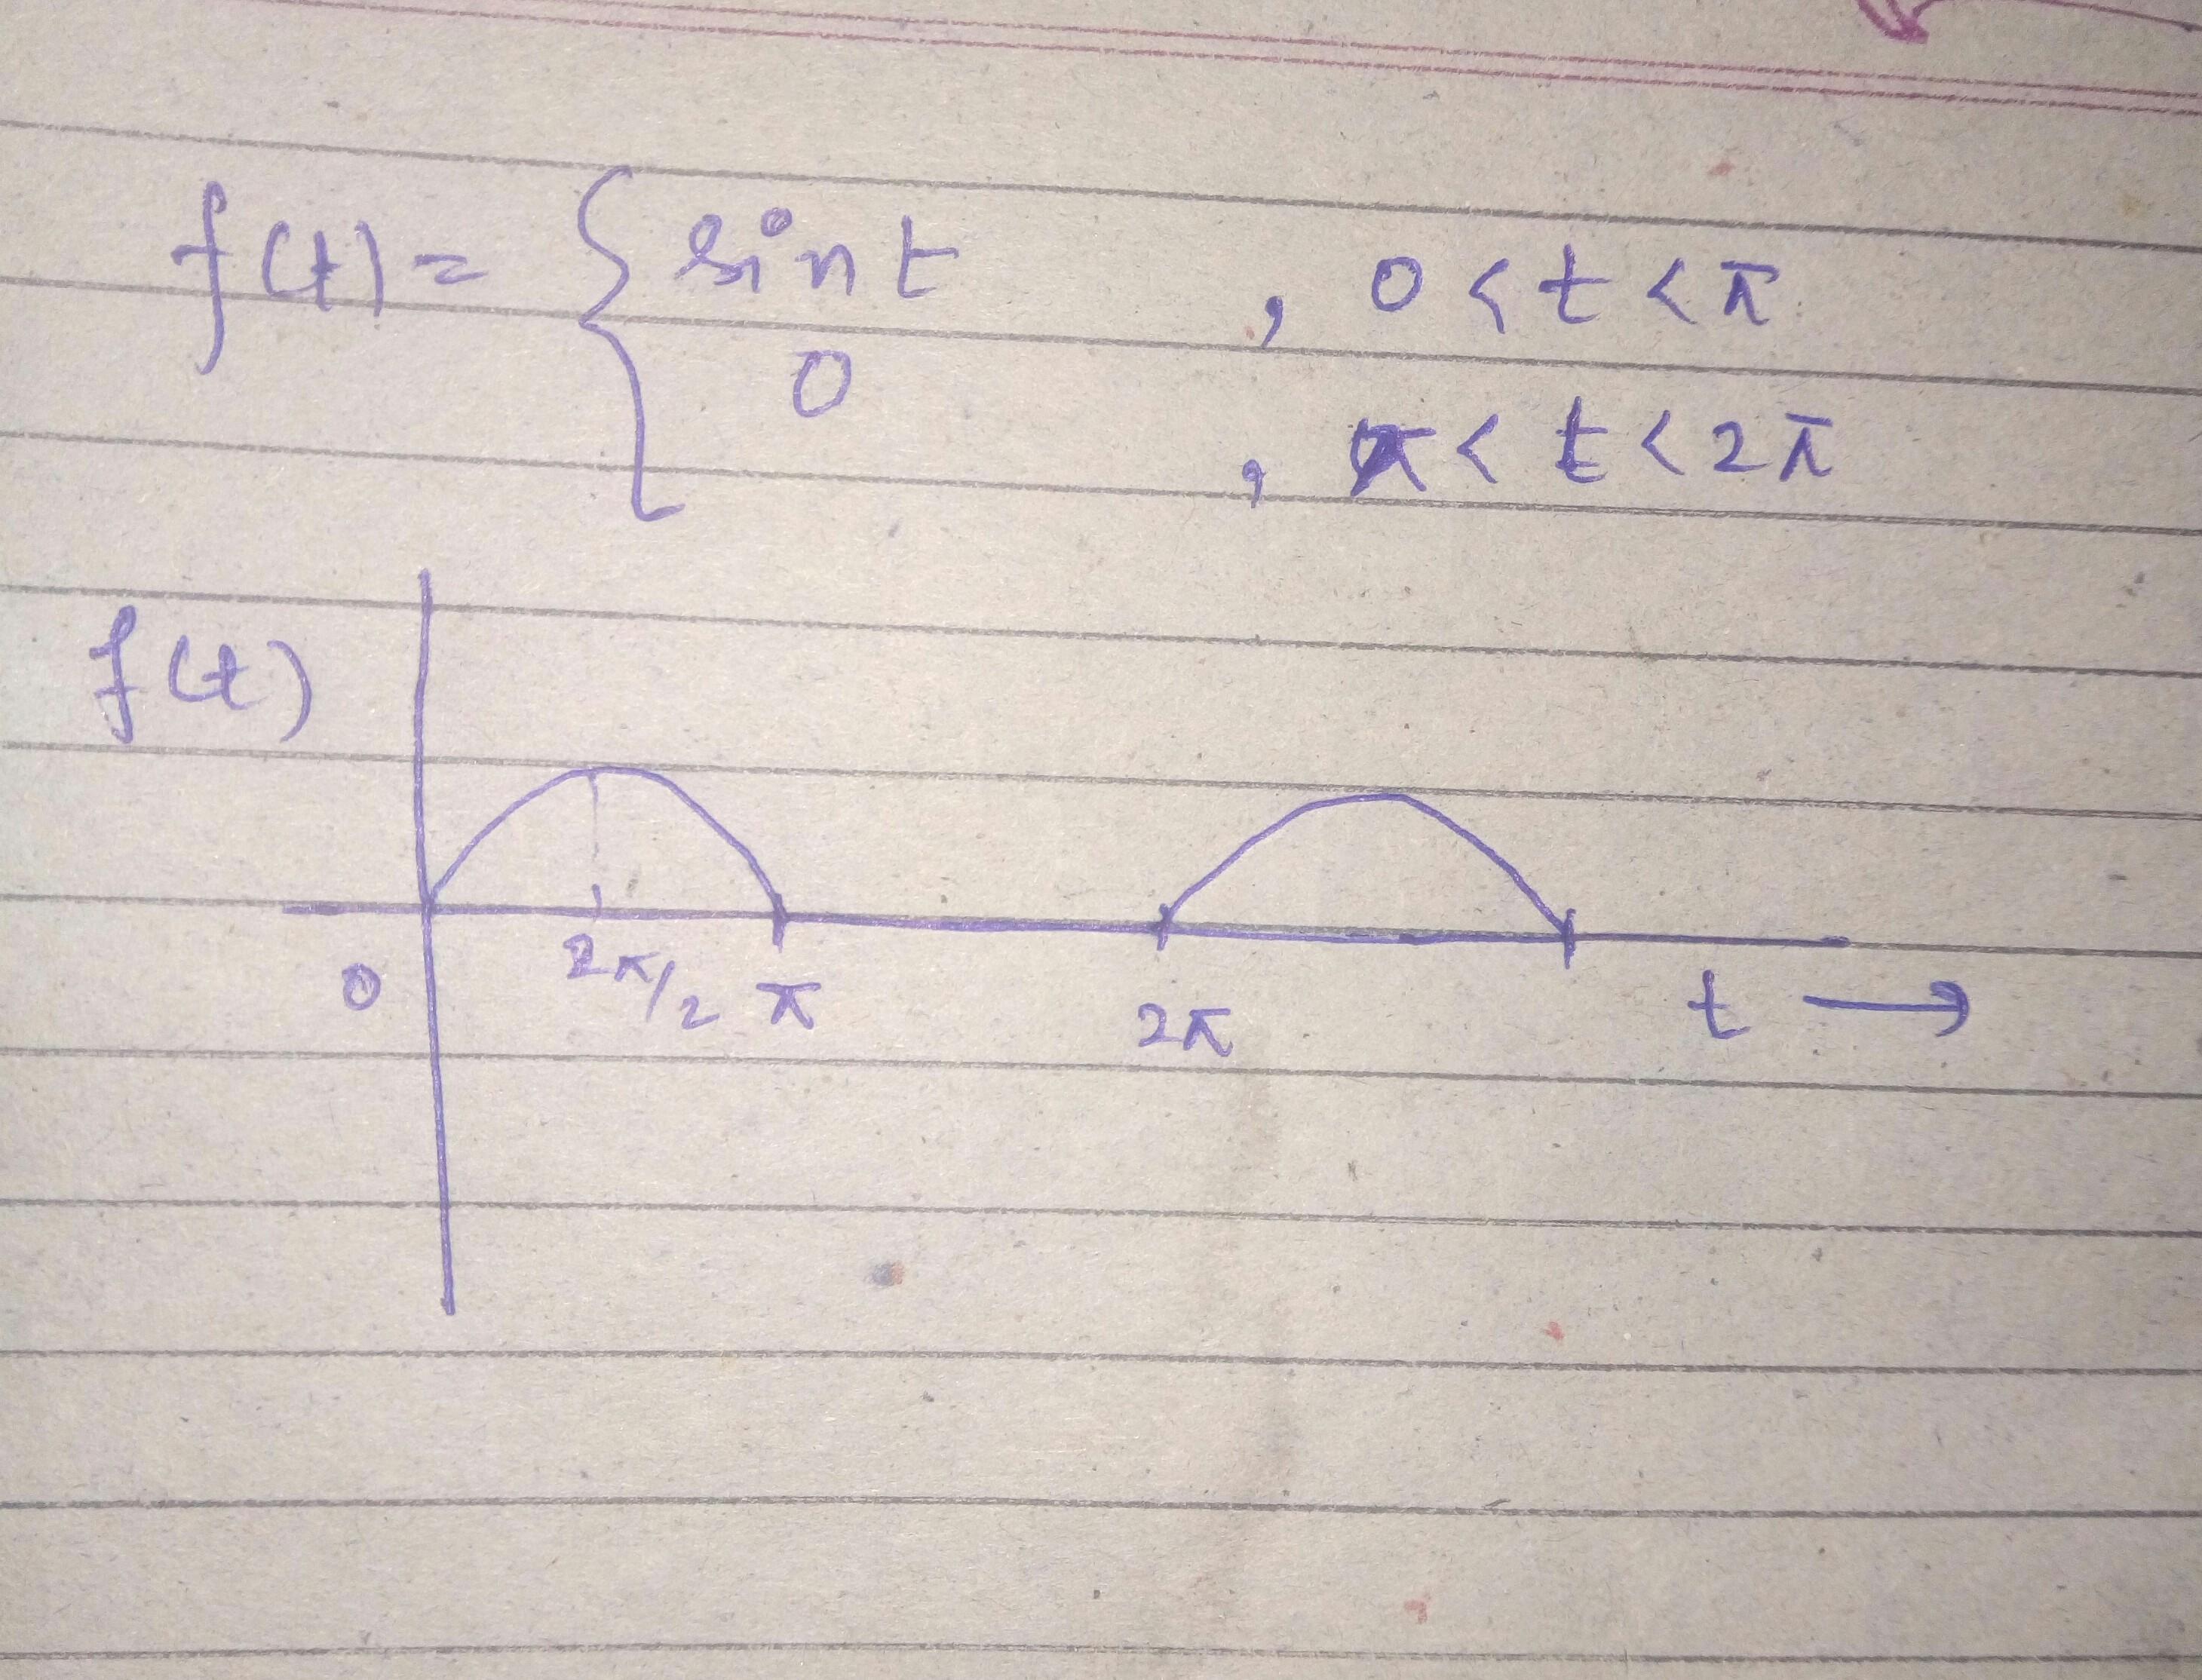 f(t) = { sin t , 0 < t < π
0 , π < t < 2π
f(t)
0 2π/2 π 2π t →